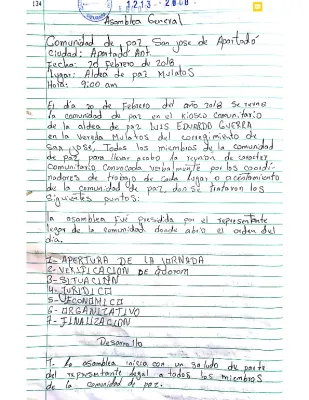 134
1213-2018
Asamblea General
Comunidad de paz San jose de Apartadó
Ciudad: Apartadó Ant.
Fecha: 20 Febrero de 2018
Lugar: Aldea de paz Mulatos
Hora: 9:00 am
El día 20 de Febrero del año 2018 se reune
la comunidad de paz en el kiosco comunitario
de la aldea de paz LUIS EDUARDO GUERRA
en la vereda Mulatos del corregimiento de
San jose, Todos los miembros de la comunidad
de paz para llevar acabo la reunion de caracter
comunitario convocada verbalmente por los coordi-
nadores de trabajo de cada lugar o acentamiento
de la comunidad de paz, donde trataron los
siguientes puntos:
la asamblea fué presidida por el representante
legar de la comunidad donde abrio el orden del
dia.
1- APERTURA DE LA JORNADA
2- VERIFICACION DE
3- SITUACION
4- JURIDICO
5- ECONOMICO
6- ORGANIZATIVO
7- FINALIZACION
Desarrollo
1. la asamblea inicia con un saludo de parte
del representante legal a todos los miembros
de la comunidad de paz.